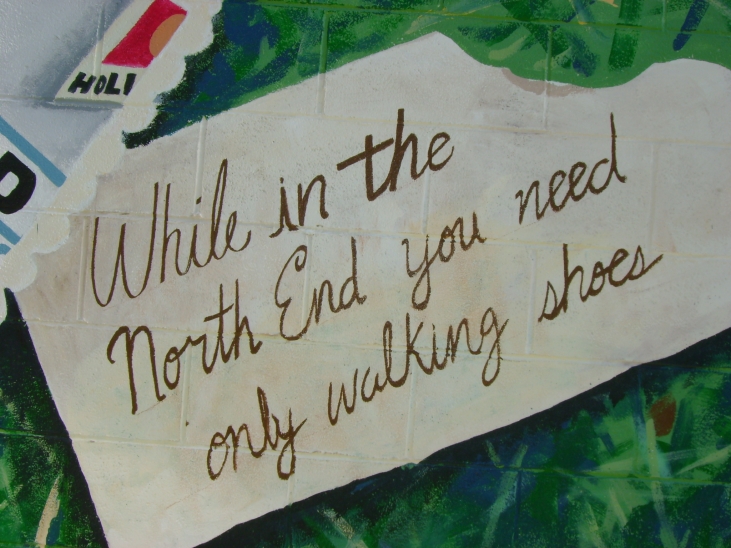 HOLI
While in the
North End you need
only walking shoes